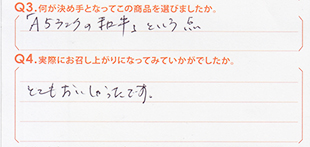 Q3.何が決め手となってこの商品を選びましたか。
「A5ランクの和牛」という点
Q4.実際にお召し上がりになってみていかがでしたか。
とてもおいしかったです。